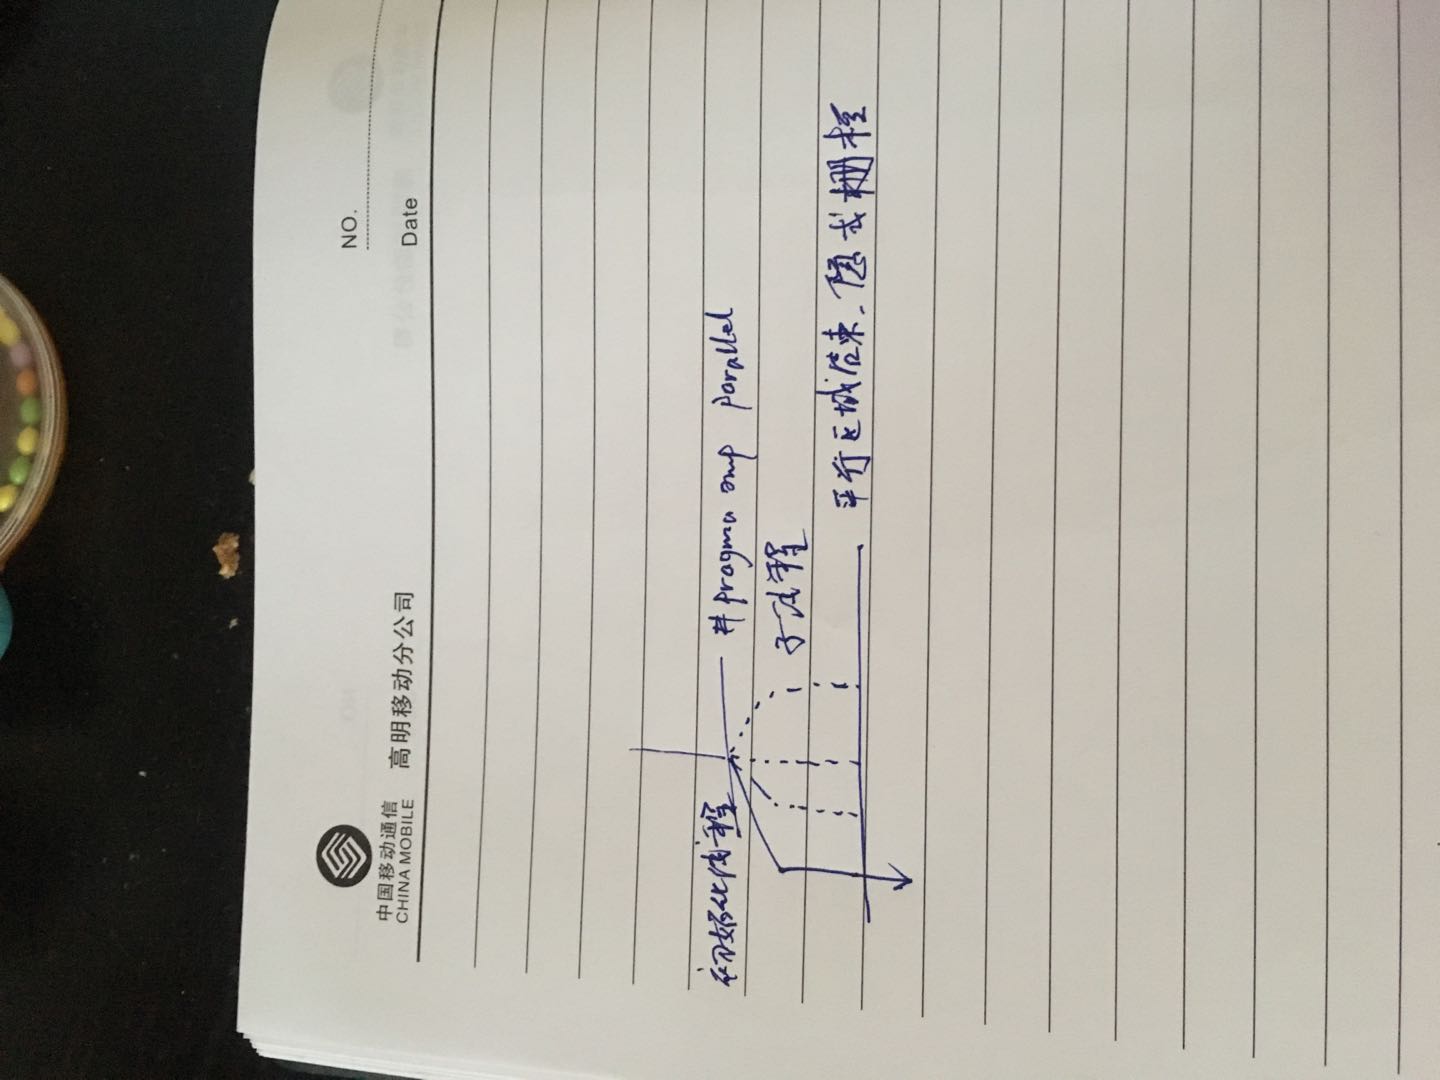 中国移动通信
CHINA MOBILE
高明移动分公司
NO.
Date
初始化线程
#pragma omp parallel
子线程
平行区域结束、隐式栅栏